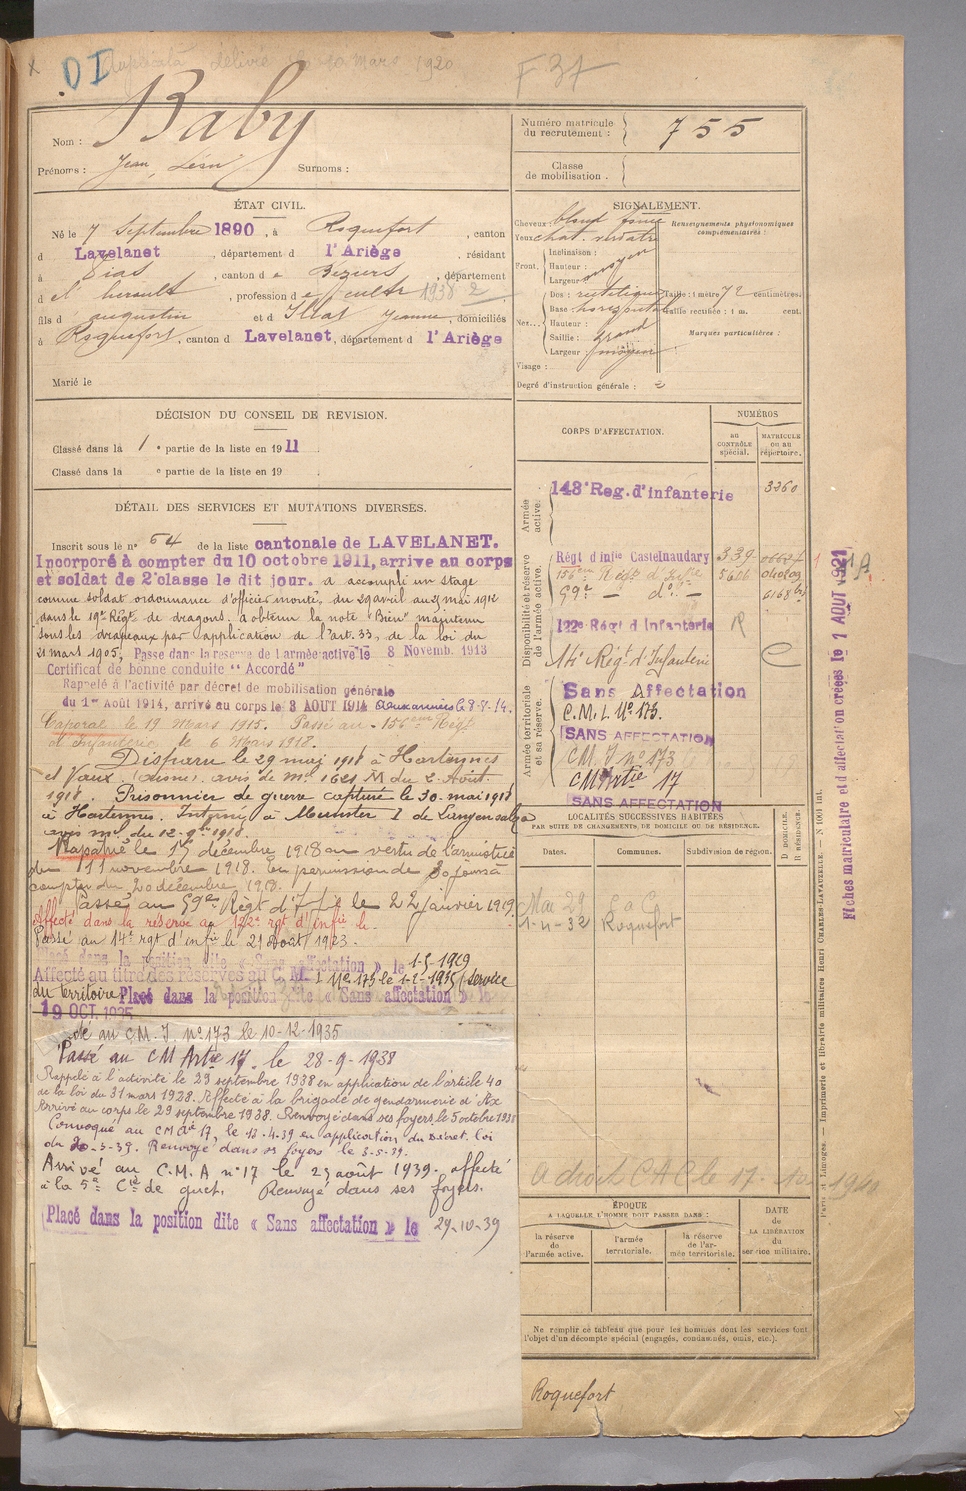 DI Duplicata délivré le 10 mars 1920
F 37
Nom : Baby
Prénoms : Jean, Léon Surnoms :
Numéro matricule du recrutement : 755
Classe de mobilisation .
ÉTAT CIVIL.
Né le 7 Septembre 1890, à Roquefort, canton
d Lavelanet, département d l'Ariège, résidant
à Vias, canton d e Béziers, département
d e l' hérault, profession d e cultr 1938 2
fils d' augustin et d Illat Jeanne, domiciliés
à Roquefort, canton d Lavelanet, département d l'Ariège
Marié le
SIGNALEMENT.
Cheveux blond foncé
Yeux chat. verdatre
Front. Inclinaison :
Hauteur : moyen
Largeur :
Nez. Dos : rectiligne
Base : horizontale
Hauteur :
Saillie : grand
Largeur : moyen
Visage :
Renseignements physionomiques complémentaires :
Taille : 1 mètre 72 centimètres.
Taille rectifiée : 1 m. cent.
Marques particulières :
Degré d'instruction générale : 2
DÉCISION DU CONSEIL DE REVISION.
Classé dans la 1 e partie de la liste en 1911
Classé dans la e partie de la liste en 19
DÉTAIL DES SERVICES ET MUTATIONS DIVERSES.
Inscrit sous le n° 64 de la liste cantonale de LAVELANET.
Incorporé à compter du 10 octobre 1911, arrive au corps
et soldat de 2e classe le dit jour. a accompli un stage
comme soldat ordonnance d'officier monté, du 29 avril au 21 mai 1912
dans le 19e Régt de dragons. a obtenu la note "Bien" maintenu
sous les drapeaux par application de l'art. 33, de la loi du
21 mars 1905, Passé dans la reserve de l'armée active le 8 Novemb. 1913
Certificat de bonne conduite "Accordé"
Rappelé à l'activité par décret de mobilisation générale
du 1er Août 1914, arrivé au corps le 3 AOUT 1914 aux armées le 8-8-14.
Caporal le 19 mars 1915. Passé au 156eme Régt
d'infanterie le 6 mars 1918.
Disparu le 29 mai 1918 à Hartennes
et Vaux (Aisne) avis de ml 1621 M du 2 Août
1918. Prisonnier de guerre capturé le 30 mai 1918
à Hartennes. Interné à Munster I de Langensalza
avis ml. du 12-9bre 1918.
Rapatrié le 17 décembre 1918 en vertu de l'armistice
du 11 novembre 1918. En permission de 30 jours à
compter du 20 décembre 1918.
Passé au 59e Régt d'Ife le 22 janvier 1919.
Affecté dans la réserve au 122e rgt d'infie le
Passé au 14e rgt d'infie le 21 Août 1923.
Placé dans la position dite « Sans affectation » le 1-5-1929
Affecté au titre des réserves au C. M. I N° 173 le 1-2-1935 (service
du territoire Placé dans la position dite « Sans affectation » le
19 OCT. 1935
au C.M.I. n° 173 le 10-12-1935
Passé au CM Artie 17. le 28-9-1938
Rappelé à l'activité le 29 septembre 1938 en application de l'article 40
de la loi du 31 mars 1928. Affecté à la brigade de gendarmerie d'Ax
Arrivé au corps le 29 septembre 1938. Renvoyé dans ses foyers le 5 octobre 1938
Convoqué au CM Aie 17, le 13.4.39 en application du Décret loi
du 20-3-39. Renvoyé dans ses foyers le 3.5.39.
Arrivé au C.M.A n° 17 le 23 août 1939. affecté
à la 5e Cie de guet. Renvoyé dans ses foyers.
Placé dans la position dite « Sans affectation » le 29-10-39
CORPS D'AFFECTATION.
NUMÉROS
au contrôle spécial.
matricule ou au répertoire.
Armée active.
143e Reg. d'infanterie 3260
Disponibilité et réserve de l'armée active.
Régt d infie Castelnaudary 339 06627
156em Régt d'Infie 5606 010809
59e — d° — 6168 bis
122e Régt d Infanterie R
14e Régt d'Infanterie
Armée territoriale et sa réserve.
Sans Affectation
C.M.I. N° 173.
SANS AFFECTATION
CM.I n° 173
CM Artie 17
SANS AFFECTATION
LOCALITÉS SUCCESSIVES HABITÉES
PAR SUITE DE CHANGEMENTS DE DOMICILE OU DE RÉSIDENCE.
Dates. Communes. Subdivision de région.
D DOMICILE.
R RÉSIDENCE.
Mai 29 C a C
1-4-32 Roquefort
a droit CAC le 17-10-1940
ÉPOQUE
A LAQUELLE L'HOMME DOIT PASSER DANS :
la réserve de l'armée active.
l'armée territoriale.
la réserve de l'armée territoriale.
DATE de LA LIBÉRATION du service militaire.
Ne remplir ce tableau que pour les hommes dont les services font
l'objet d'un décompte spécial (engagés, condamnés, omis, etc.).
Roquefort
Paris et Limoges. — Imprimerie et librairie militaires Henri CHARLES-LAVAUZELLE. — N 1001 int.
Fiches matriculaire et d'affectation créées le 1 AOUT 1921